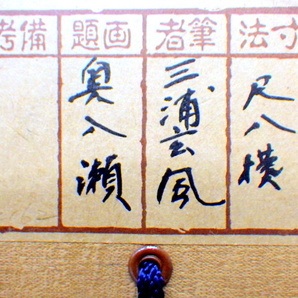 寸法
尺八横
筆者
三浦玄風
画題
奥入瀬
備考